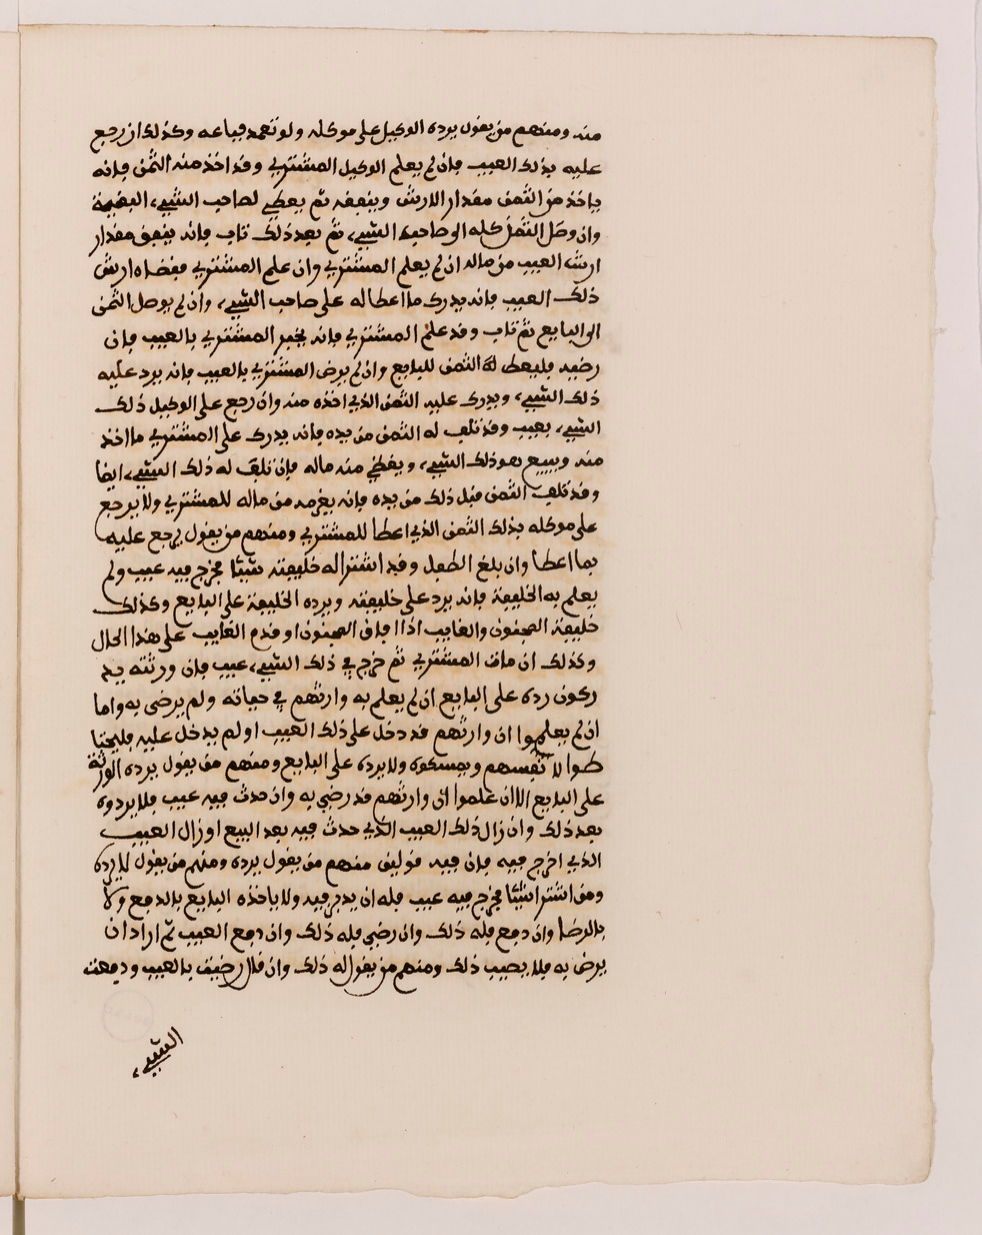 منه ومنهم من يقول يرده الوكيل على موكله ولو تعمد فباعه وكذلك ان رجع
عليه بذلك العيب فان لم يعلم الوكيل المشتري وقد اخذ منه الثمن فانه
ياخذ من الثمن مقدار الارش وينفقه ثم يعطي لصاحب الشيء البقية
وان وصل الثمن كله الى صاحب الشيء ثم بعد ذلك تاب فانه ينفق مقدار
ارش العيب من ماله ان لم يعلم المشتري وان علم المشتري فقضاه ارش
ذلك العيب فانه يدرك ما اعطا له على صاحب الشيء وان لم يوصل الثمن
الى البايع ثم تاب وقد علم المشتري فانه يخبر المشتري بالعيب فان
رضيه فليعط له الثمن للبايع وان لم يرض المشتري بالعيب فانه يرد عليه
ذلك الشيء ويدرك عليه الثمن الذي اخذه منه وان رجع على الوكيل ذلك
الشيء بعيب وقد تلف له الثمن من يده فانه يدرك على المشتري ما اخذ
منه ويبيع هو ذلك الشيء ويقضي منه ماله فان تلف له ذلك الشيء ايضا
وقد تلف الثمن قبل ذلك من يده فانه يغرمه من ماله للمشتري ولا يرجع
على موكله بذلك الثمن الذي اعطا للمشتري ومنهم من يقول يرجع عليه
بما اعطا وان بلغ الطفل وقد اشترا له خليفته شيئا فخرج فيه عيب ولم
يعلم به الخليفة فانه يرد على خليفته ويرده الخليفة على البايع وكذلك
خليفة المجنون والغايب اذا افاق المجنون او قدم الغايب على هذا الحال
وكذلك ان مات المشتري ثم خرج في ذلك الشيء عيب فان ورثته يد
ركون رده على البايع ان لم يعلم به وارثهم في حياته ولم يرضى به واما
ان لم يعلموا ان وارثهم قد دخل على ذلك العيب او لم يدخل عليه فليحتا
طوا لانفسهم ويمسكوه ولا يرده على البايع ومنهم من يقول يرده الورثة
على البايع الا ان علموا ان وارثهم قد رضي به وان حدث فيه عيب فلا يردوه
بعد ذلك وان زال ذلك العيب الذي حدث فيه بعد البيع او زال العيب
الذي اخرج فيه فان فيه قولين منهم من يقول يرده ومنهم من يقول لا يرده
ومن اشترا شيئا فخرج فيه عيب فله ان يدبر فيه ولا ياخذه البايع بالدفع ولا
بالرضا وان دفع فله ذلك وان رضي فله ذلك وان دفع العيب ثم اراد ان
يرض به فلا يصيب ذلك ومنهم من يقول له ذلك وان قال رضيت بالعيب ودفعت
الشيء